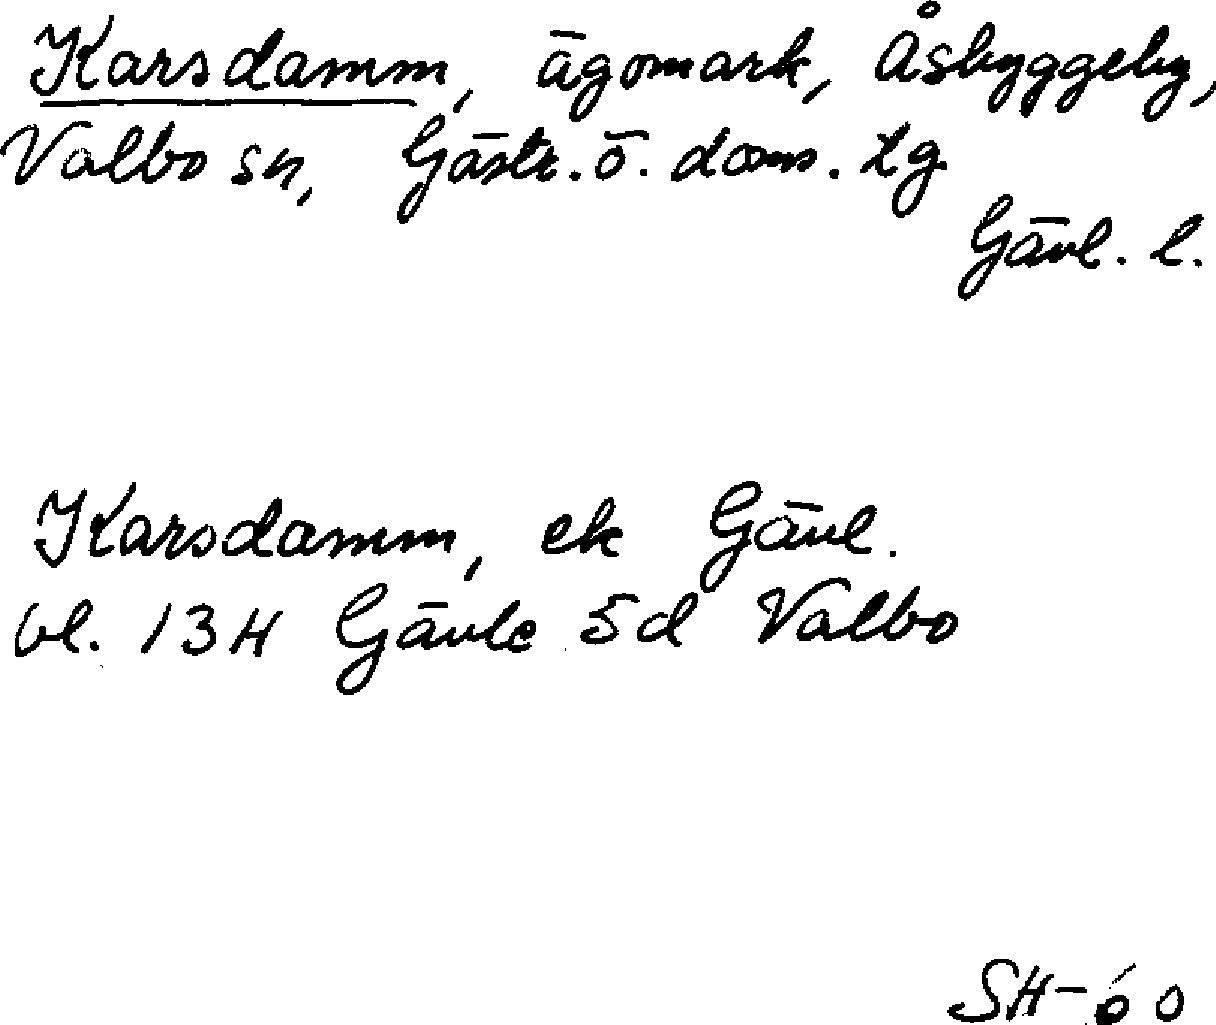 Karsdamm, ägomark, Åsbyggeby,
Valbo sn, Gästr. ö. doms. tg
Gävl. l.
Karsdamm, ek Gävl.
bl. 13H Gävle 5d Valbo
SH-60